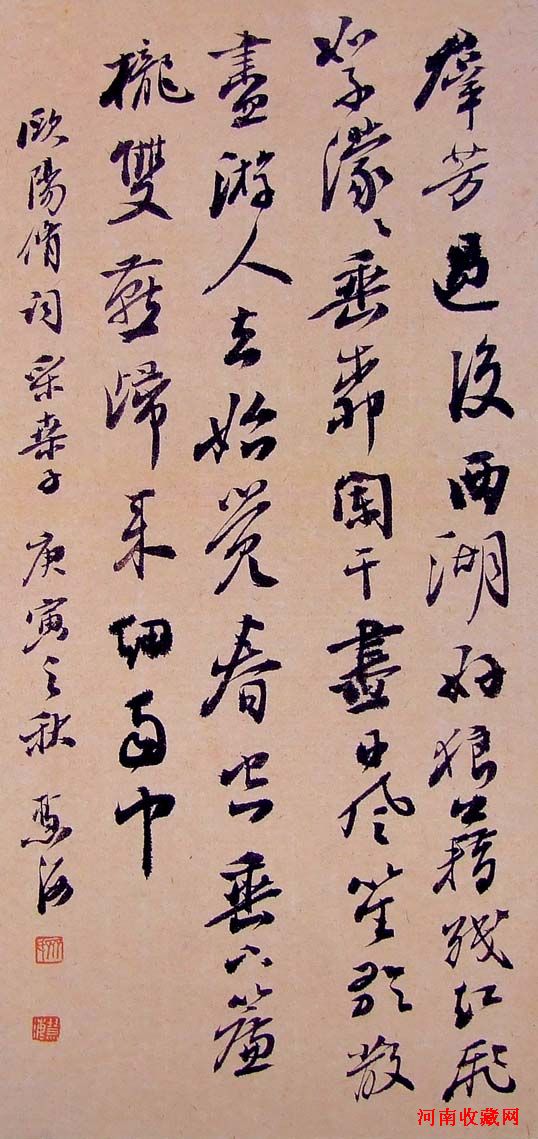 羣芳過後西湖好狼籍残红飛
絮濛〻垂柳闌干盡日風笙歌散
盡游人去始覺春空垂下簾
櫳雙燕歸来细雨中
歐陽脩词采桑子 庚寅之秋 海
河南收藏网